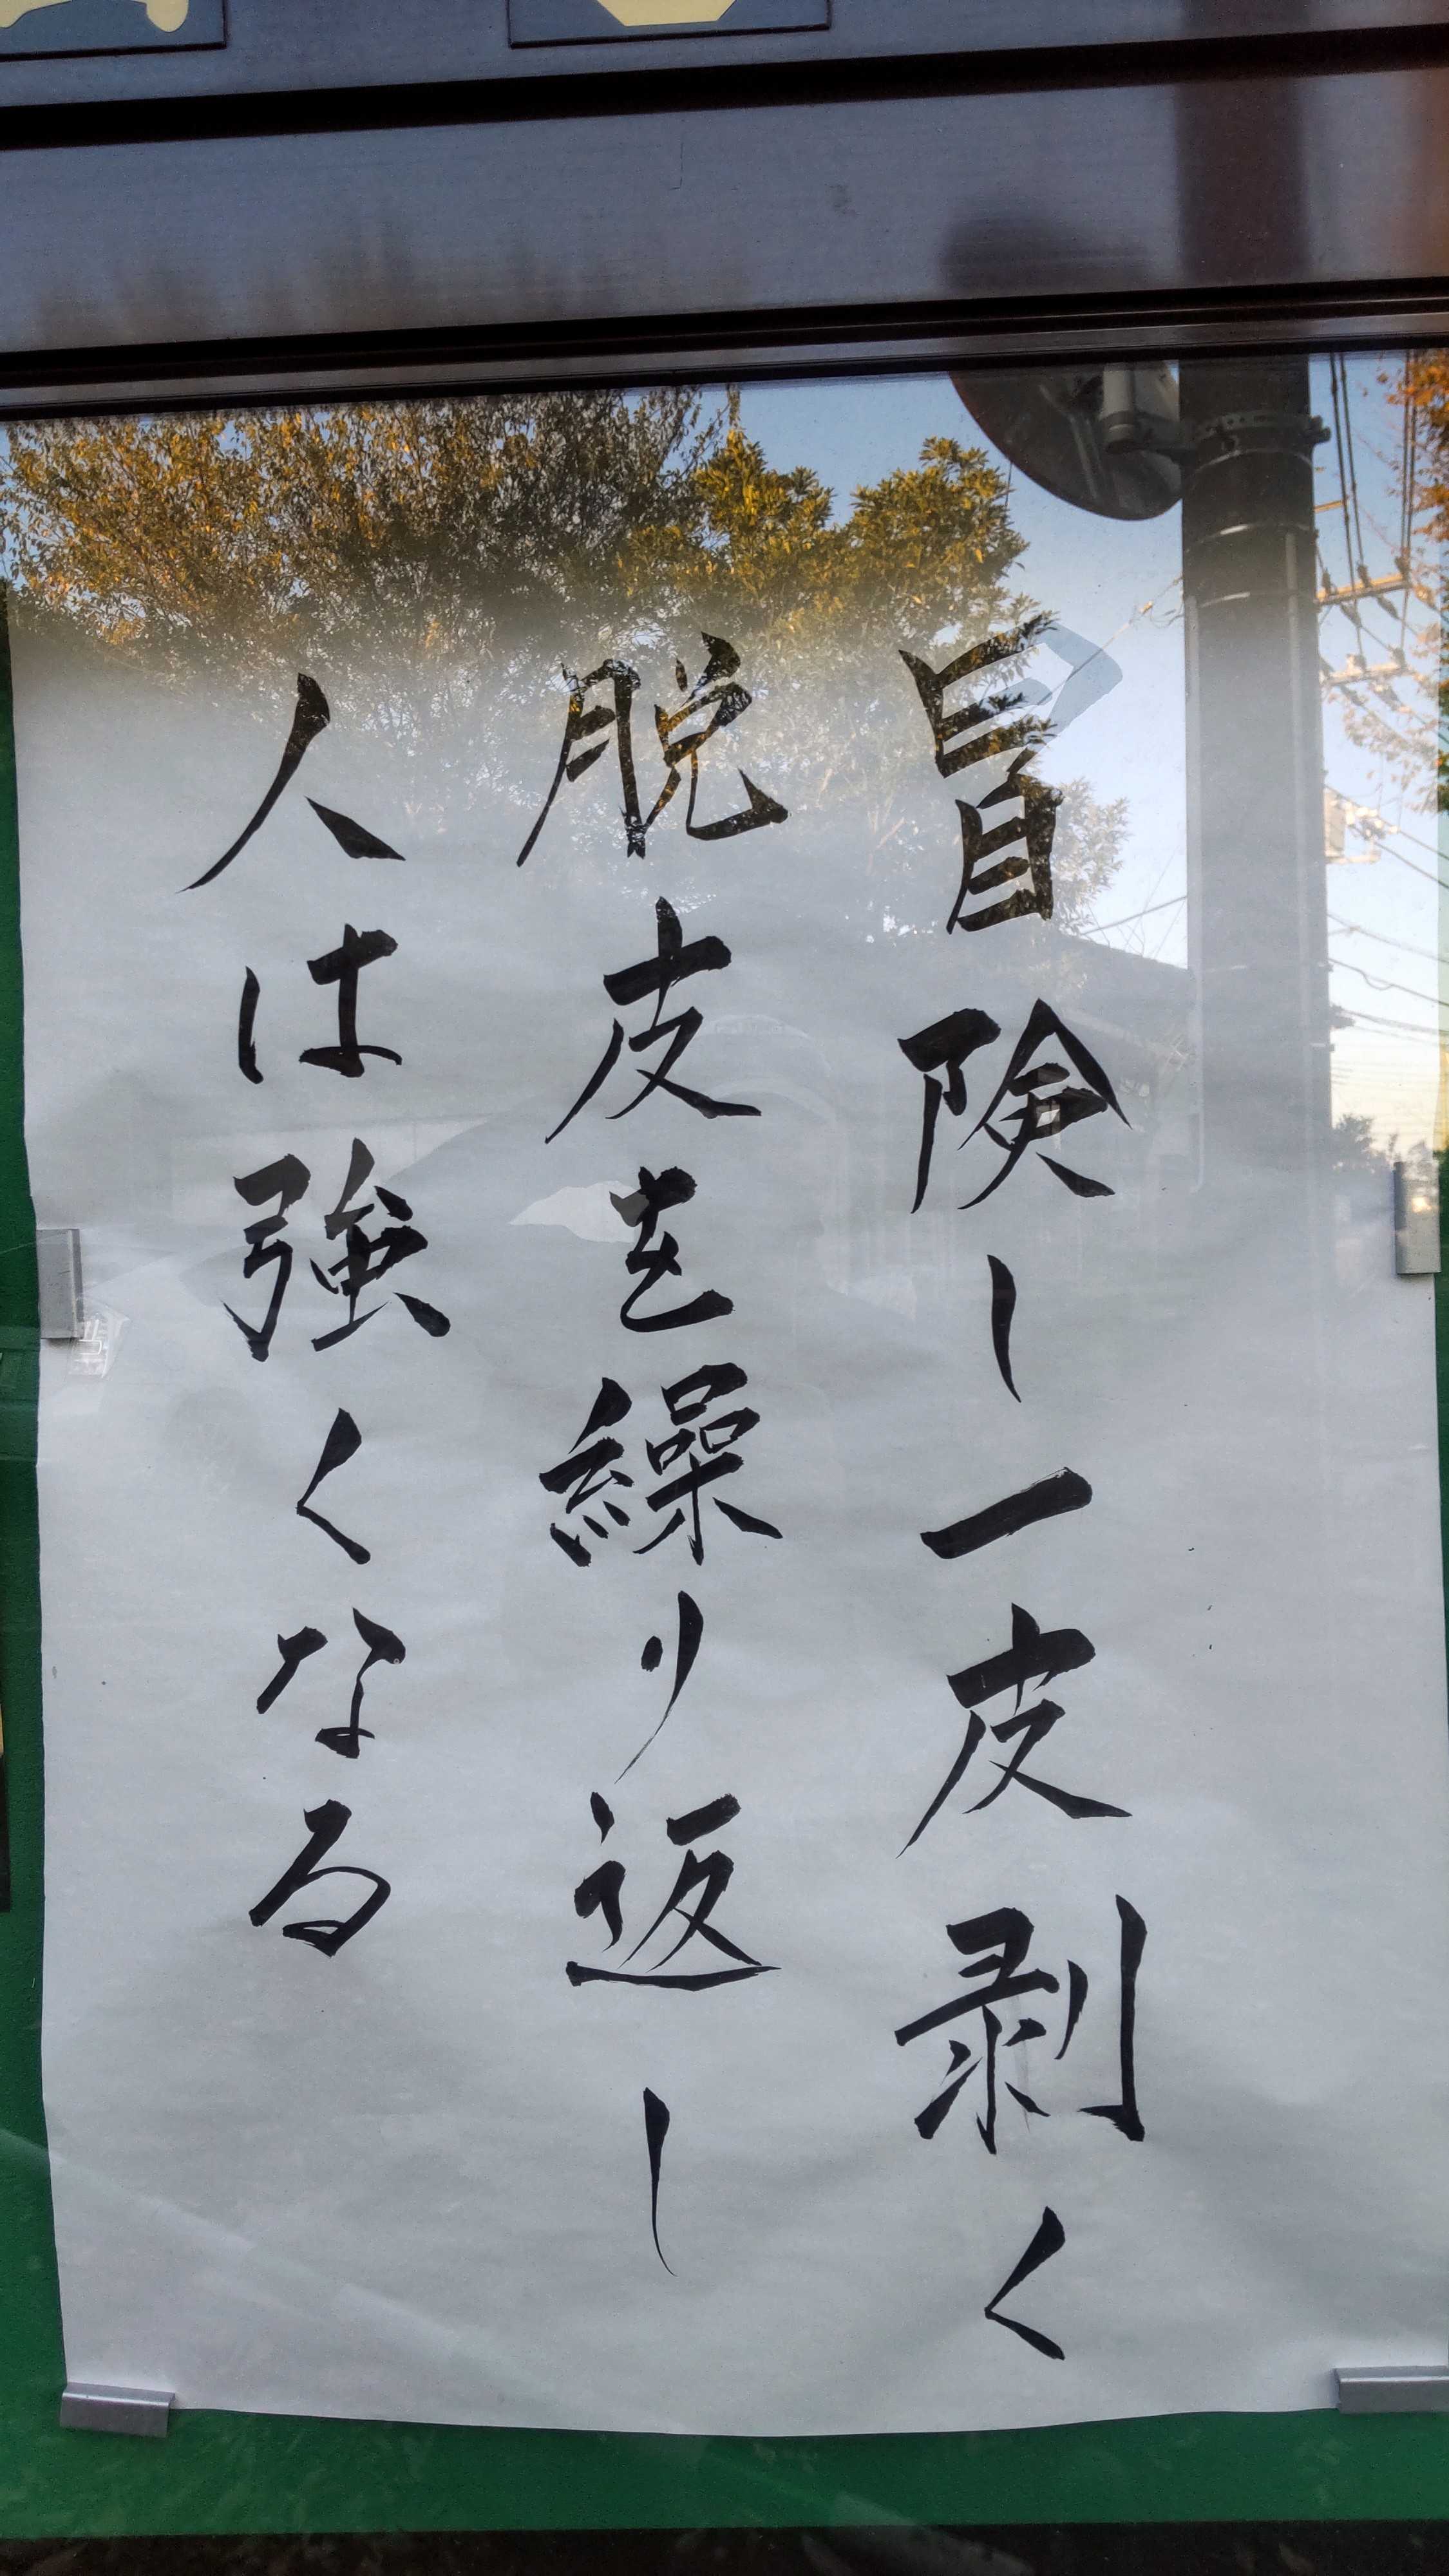 冒険し一皮剥く
脱皮を繰り返し
人は強くなる